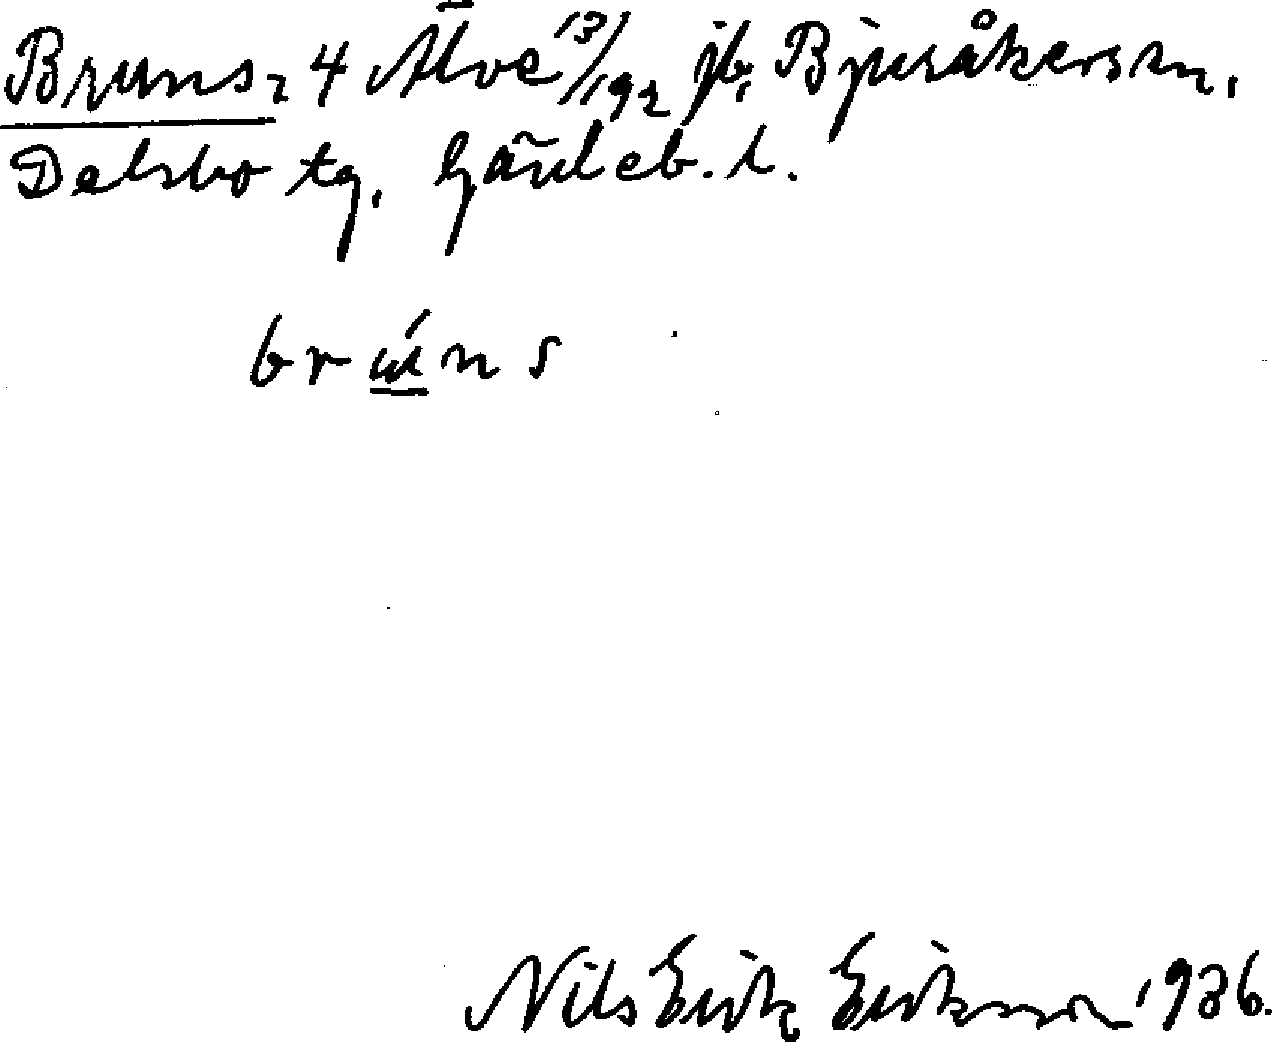 Bruns, 4 Älve 13/192 jb, Bjuråkers sn,
Delsbo tg, Gävleb. l.
brúns
Nils Erik Erikson 1936.